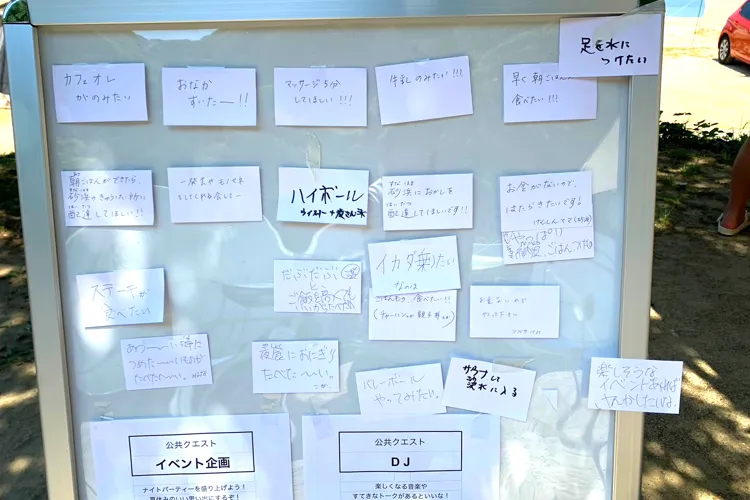 足を水に
つけたい
カフェオレ
がのみたい
おなか
すいたー!!
マッサージ5分
してほしい!!!
牛乳のみたい!!!
早く朝ごはんが
食べたい!!!
朝ごはんができたら、
砂浜のきゅうけい所に
配達してほしい!!
一発芸やモノマネ
ハイボール
ウイスキー+炭さん水
すなはま
砂浜におかしを
はいたつ
配達してほしいです!!
お金がないので、
はたらきたいです!
ステーキが
食べたい
イカダ乗りたい
なのは
ごはんもっと食べたい!!
お金ないので
やってたい
あつーーい時に
つめたーーいものが
たべたーい。
夜食におにぎり
たべたーい。
バレーボール
やってみたい。
サウナして
炭水に入る
楽しそうな
イベントあれば
さんかしたいな。
公共クエスト
イベント企画
ナイトパーティーを盛り上げよう!
夏休みのいい思い出にするぞ!
公共クエスト
DJ
楽しくなる音楽や
すてきなトークがあるといいな!